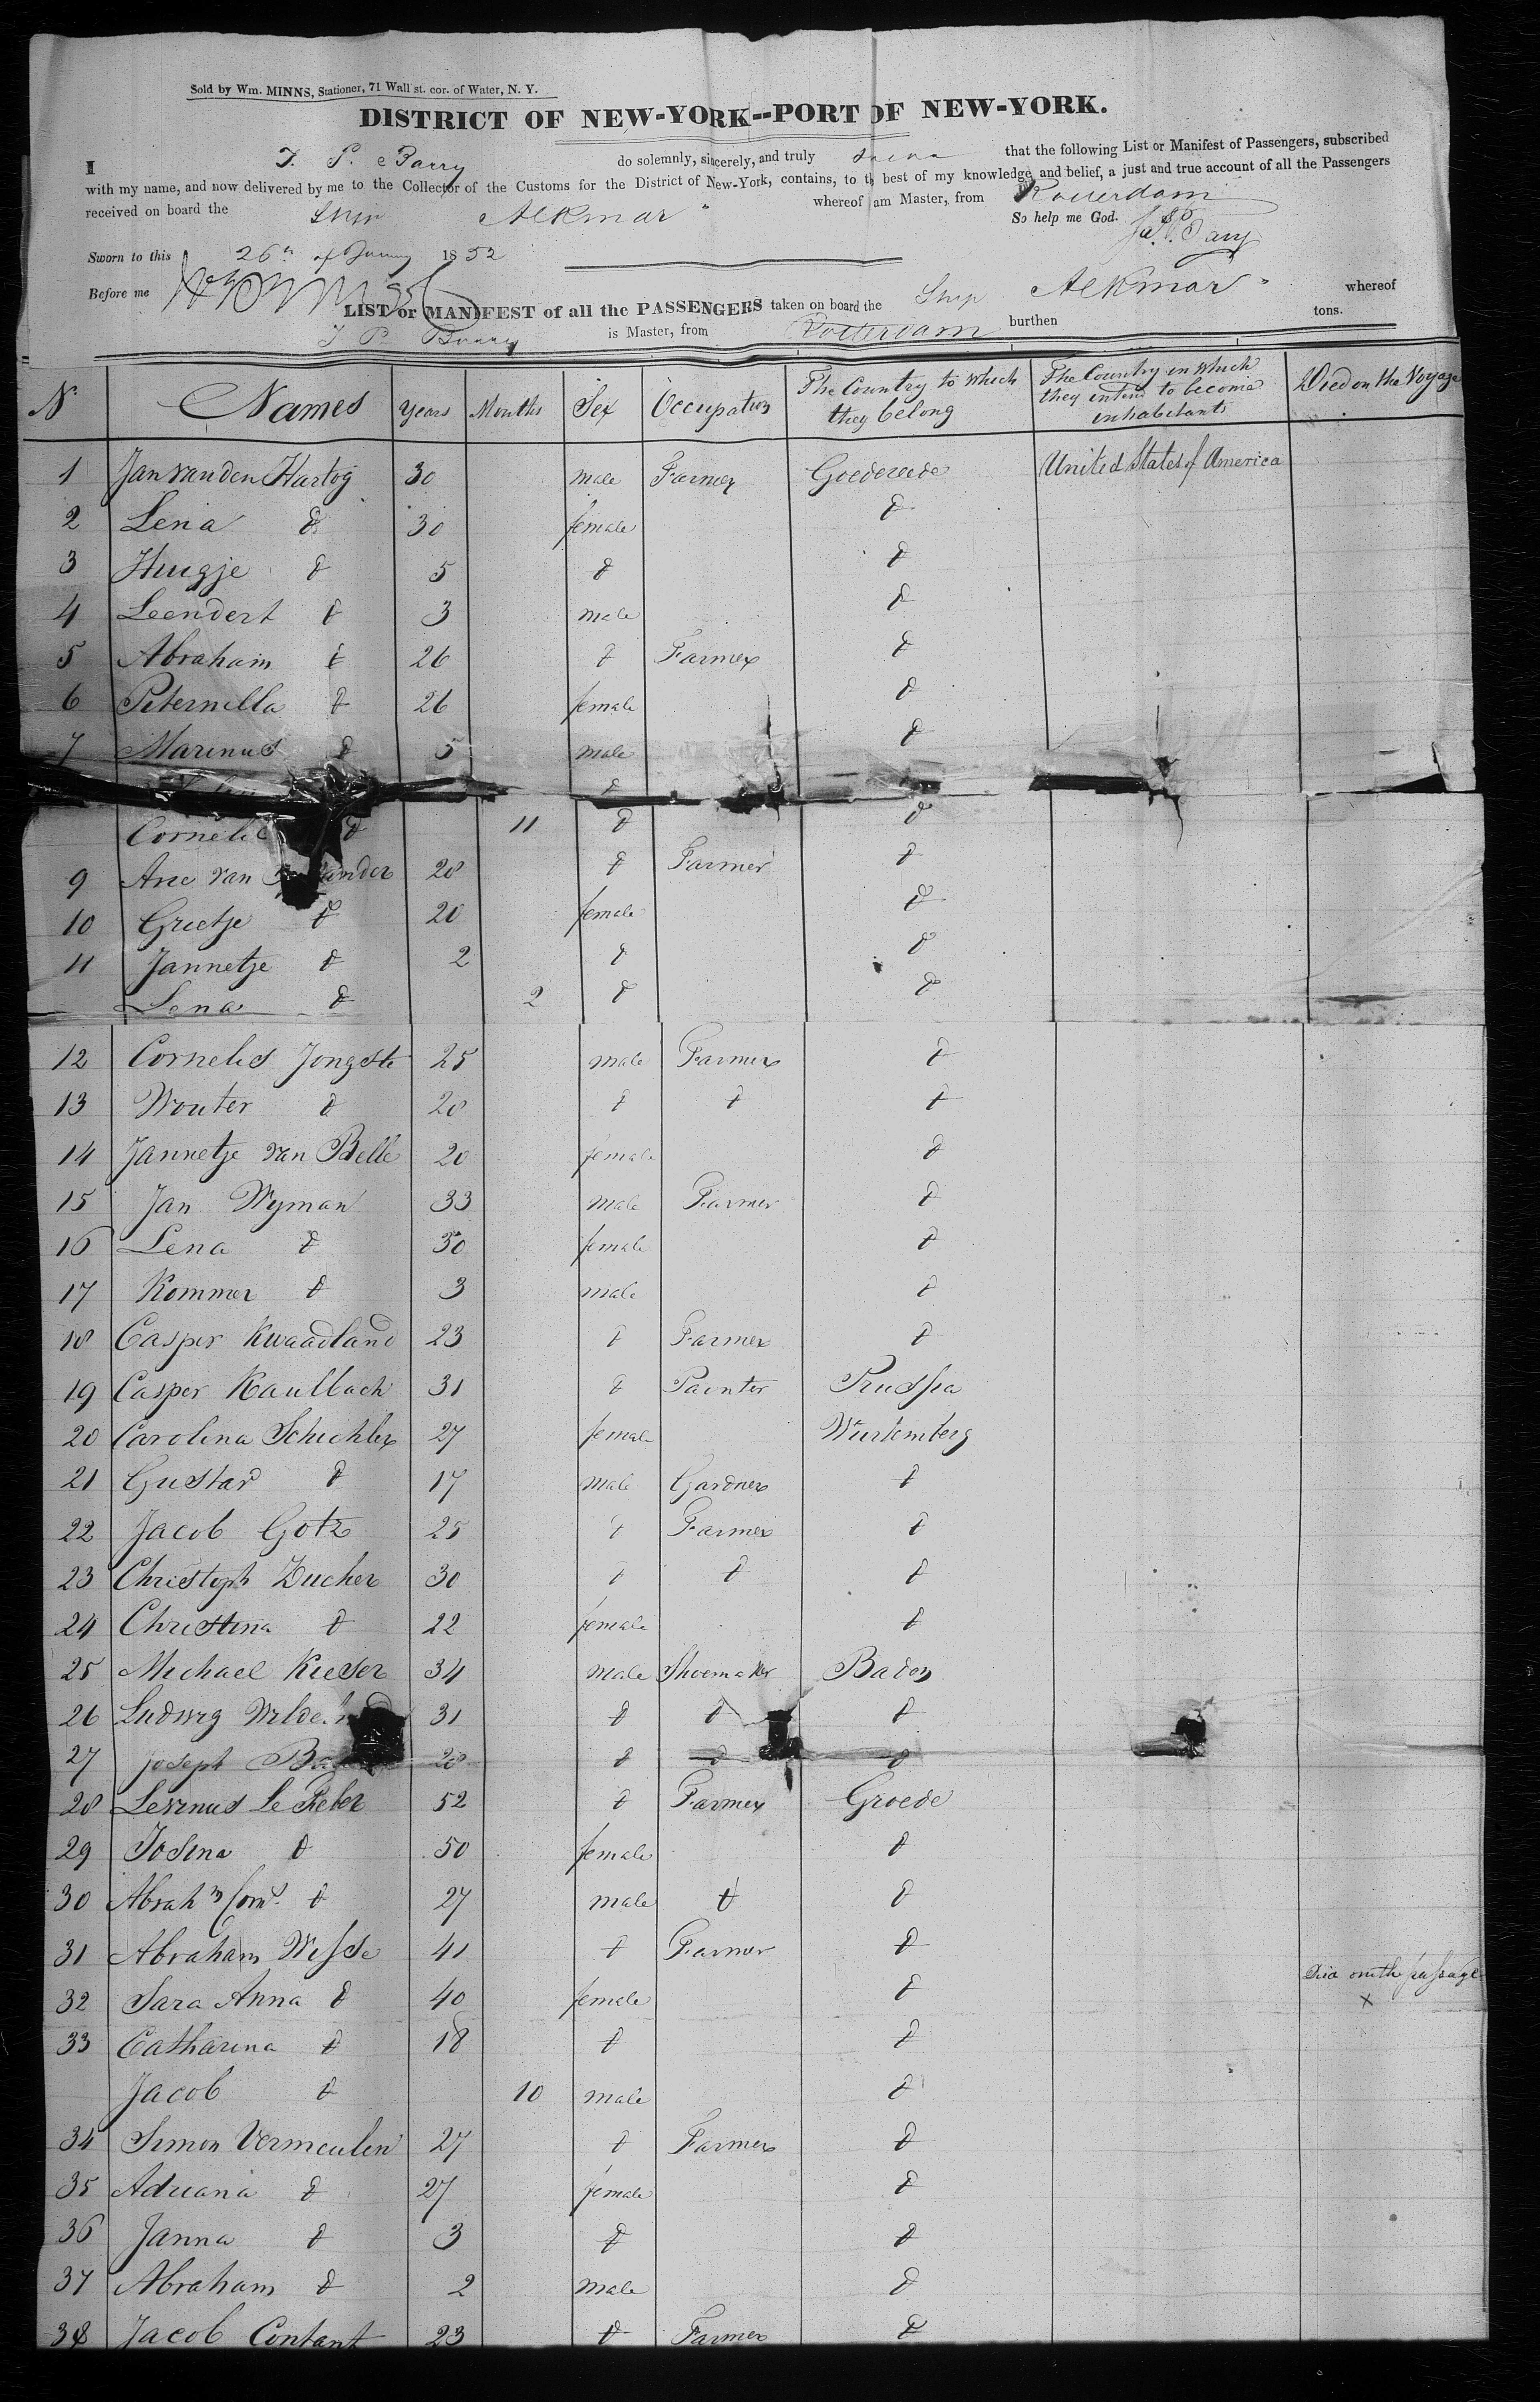 Sold by Wm. MINNS, Stationer, 71 Wall st. cor. of Water, N. Y.
DISTRICT OF NEW-YORK--PORT OF NEW-YORK.
I J. P. Barry do solemnly, sincerely, and truly that the following List or Manifest of Passengers, subscribed
with my name, and now delivered by me to the Collector of the Customs for the District of New-York, contains, to the best of my knowledge and belief, a just and true account of all the Passengers
received on board the Ship Alkmar whereof am Master, from Rotterdam
So help me God.
Sworn to this 26th of 1852
Before me
LIST or MANIFEST of all the PASSENGERS taken on board the Ship Alkmar whereof
is Master, from Rotterdam burthen tons.
No Names Years Months Sex Occupation The Country to which they belong The Country in which they intend to become inhabitants Died on the Voyage
1 Jan van den Hartog 30 male Farmer Goedereede United States of America
2 Lena do 30 female do
3 Huigje do 5 do do
4 Leendert do 3 male do
5 Abraham do 26 do Farmer do
6 Peternella do 26 female do
7 Marinus do 5 male do
do
Cornelis do 11 do do
9 Arie van 28 do Farmer do
10 Grietje do 20 female do
11 Jannetje do 2 do do
Lena do 2 do do
12 Cornelis Jongste 25 male Farmer do
13 Wouter do 20 do do do
14 Jannetje van Belle 20 female do
15 Jan Wyman 33 male Farmer do
16 Lena do 30 female do
17 Kommer do 3 male do
18 Casper Kwaadland 23 do Farmer do
19 Casper Kaulbach 31 do Painter Prussia
20 Carolina Schichler 27 female Wurtemberg
21 Gustav do 17 male Gardner do
22 Jacob Gotz 25 do Farmer do
23 Christoph Ducher 30 do do do
24 Christina do 22 female do
25 Michael Kieser 34 male Shoemaker Baden
26 Ludwig 31 do do do
27 Joseph 28 do do do
28 Levinus Le Feber 52 do Farmer Groede
29 Josina do 50 female do
30 Abrahm Corns. do 27 male do do
31 Abraham Wisse 41 do Farmer do
32 Sara Anna do 40 female do Died on the passage x
33 Catharina do 18 do do
Jacob do 10 male do
34 Simon Vermeulen 27 do Farmer do
35 Adriana do 27 female do
36 Janna do 3 do do
37 Abraham do 2 male do
38 Jacob Contant 23 do Farmer do